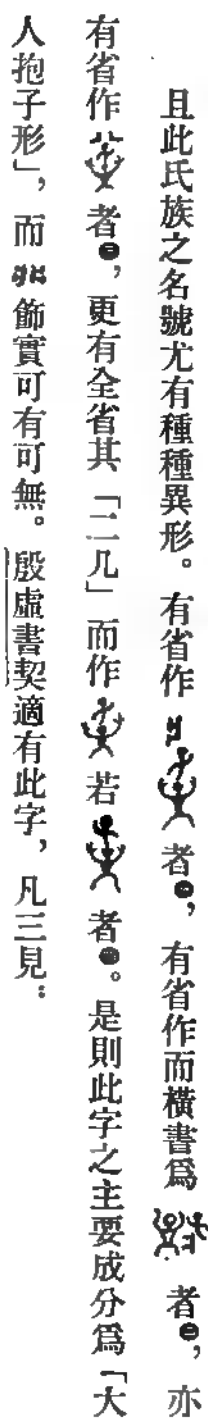 且此氏族之名號尤有種種異形。有省作者㊀，有省作而橫書爲者㊁，亦
有省作者㊂，更有全省其「二几」而作若者㊃。是則此字之主要成分爲「大
人抱子形」，而飾實可有可無。殷虛書契適有此字，凡三見：